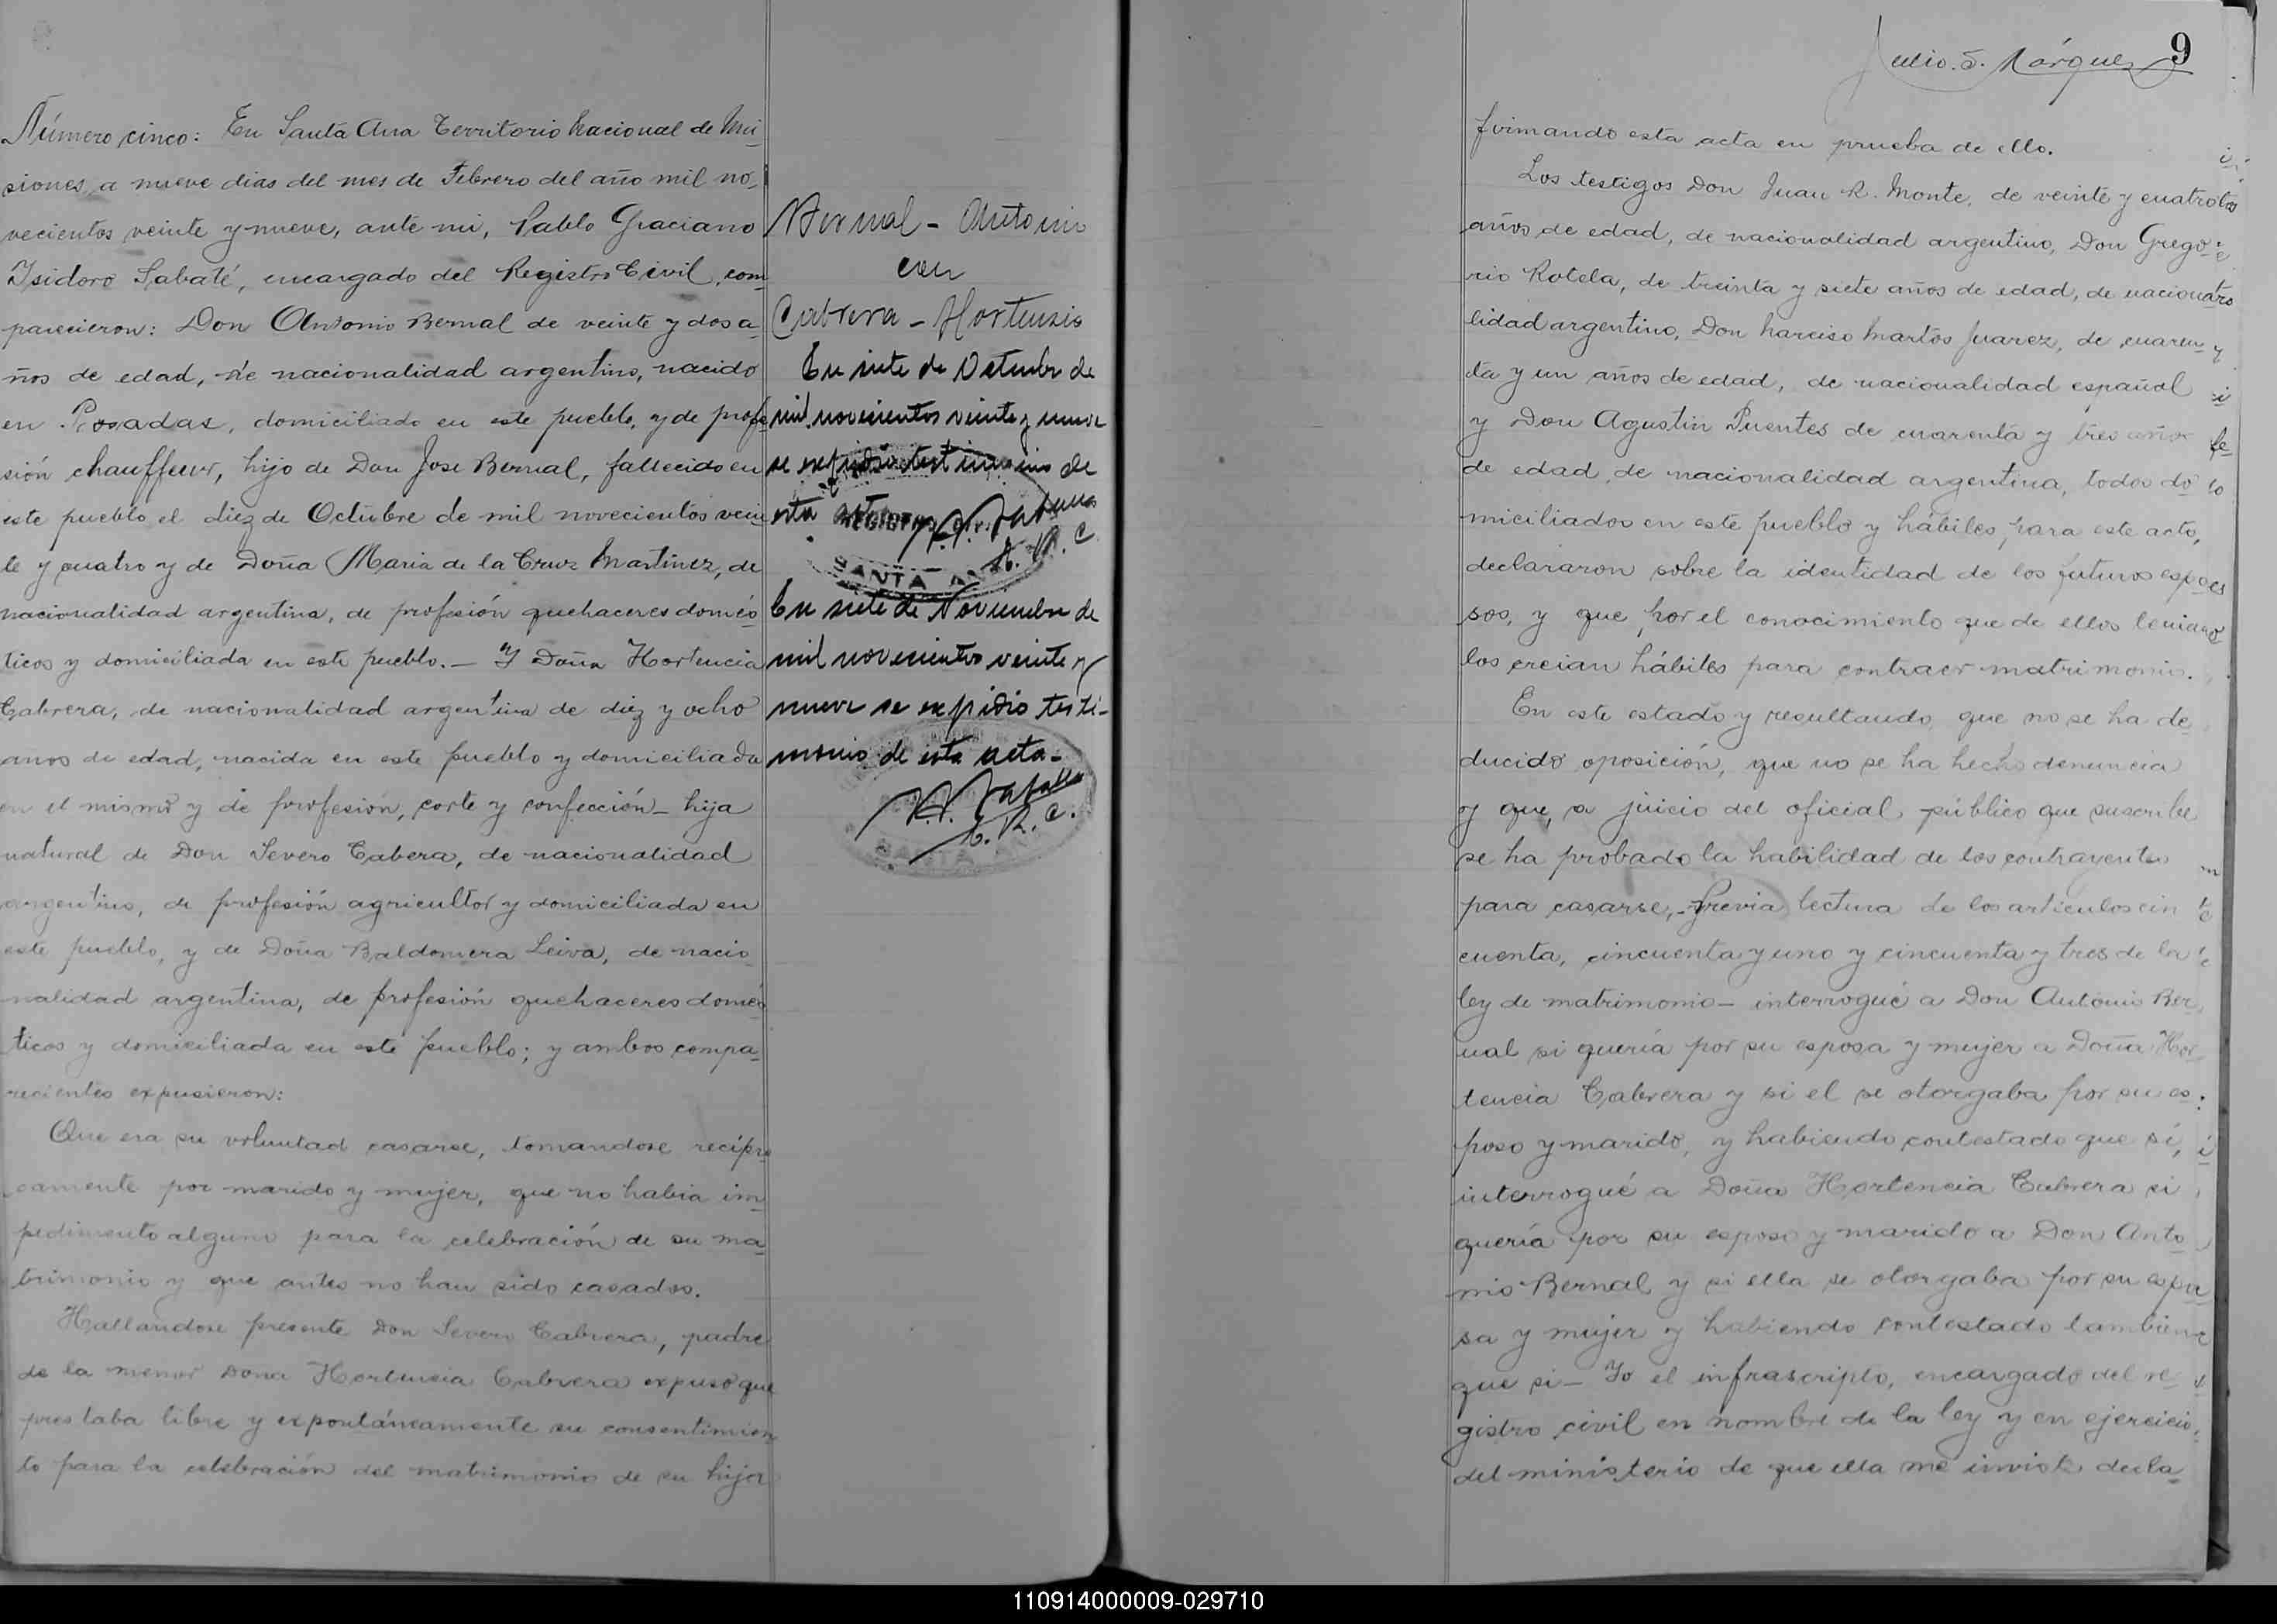 Número cinco: En Santa Ana Territorio Nacional de Mi-
siones a nueve dias del mes de Febrero del año mil no-
vecientos veinte y nueve, ante mi, Pablo Graciano
Isidoro Sabaté, encargado del Registro Civil, com-
parecieron: Don Antonio Bernal de veinte y dos a-
ños de edad, de nacionalidad argentino, nacido
en Posadas, domiciliado en este pueblo, y de profe-
sión chauffeur, hijo de Don Jose Bernal, fallecido en
este pueblo el diez de Octubre de mil novecientos vein-
te y cuatro y de Doña Maria de la Cruz Martinez, de
nacionalidad argentina, de profesión quehaceres domés-
ticos y domiciliada en este pueblo.- Y Doña Hortencia
Cabrera, de nacionalidad argentina de diez y ocho
anos de edad, nacida en este pueblo y domiciliada
en el mismo y de profesión, corte y confección- hija
natural de Don Severo Cabera, de nacionalidad
argentino, de profesión agricultor y domiciliada en
este pueblo, y de Doña Baldomera Leiva, de nacio-
nalidad argentina, de profesión quehaceres domés-
ticos y domiciliada en este pueblo; y ambos compa-
recientes expusieron:
Que era su voluntad casarse, tomandose recípro-
camente por marido y mujer, que no habia im-
pedimento alguno para la celebración de su ma-
trimonio y que antes no han sido casados.
Hallandose presente Don Severo Cabrera, padre
de la menor Dona Hortencia Cabrera expuso que
prestaba libre y expontáneamente su consentimien-
to para la celebración del matrimonio de su hija
Bernal - Antonio
con
Cabrera - Hortensia
En siete de Octubre de
mil novecientos veinte y nueve
se expidio testimonio de
esta acta
REGISTRO CIVIL
SANTA ANA
En siete de Noviembre de
mil novecientos veinte y
nueve se expidio testi-
monio de esta acta-
E. R. C.
SANTA ANA
Julio S. Márquez
9
firmando esta acta en prueba de ello.
Los testigos Don Juan R. Monte, de veinte y cuatro
años de edad, de nacionalidad argentino, Don Grego-
rio Rotela, de treinta y siete años de edad, de naciona-
lidad argentino, Don Narciso Martos Juarez, de cuaren-
ta y un años de edad, de nacionalidad español
y Don Agustin Puentes de cuarenta y tres años
de edad, de nacionalidad argentina, todos do-
miciliados en este pueblo y hábiles para este acto,
declararon sobre la identidad de los futuros espo-
sos, y que por el conocimiento que de ellos tenian
los creian hábiles para contraer matrimonio.
En este estado y resultando, que no se ha de-
ducido oposición, que no se ha hecho denuncia
y que, a juicio del oficial público que suscribe
se ha probado la habilidad de los contrayentes
para casarse,- previa lectura de los articulos cin-
cuenta, cincuenta y uno y cincuenta y tres de la
ley de matrimonio- interrogué a Don Antonio Ber-
nal si quería por su esposa y mujer a Doña Hor-
tencia Cabrera y si el se otorgaba por su es-
poso y marido, y habiendo contestado que sí,
interrogué a Doña Hortencia Cabrera si
quería por su esposo y marido a Don Anto-
nio Bernal y si ella se otorgaba por su espo-
sa y mujer y habiendo contestado tambien
que si- Yo el infrascripto, encargado del re-
gistro civil en nombre de la ley y en ejercicio
del ministerio de que ella me inviste decla-
110914000009-029710